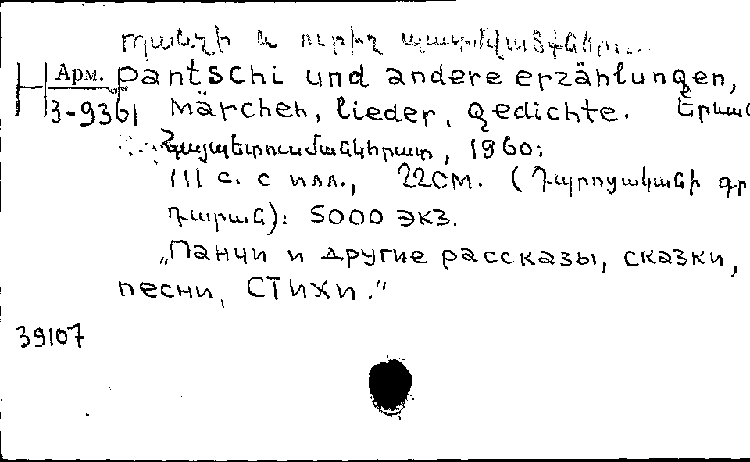 Պանչի և ուրիշ պատմվածքներ...
Арм. Pantschi und andere erzählungen,
3-9361 märchen, lieder, gedichte. Երևա
Հայպետուսմանկհրատ, 1960:
111 с. с илл., 22см. (Դպրոցականի գր
դարան): 5000 экз.
„Панчи и другие рассказы, сказки,
песни, стихи."
39107